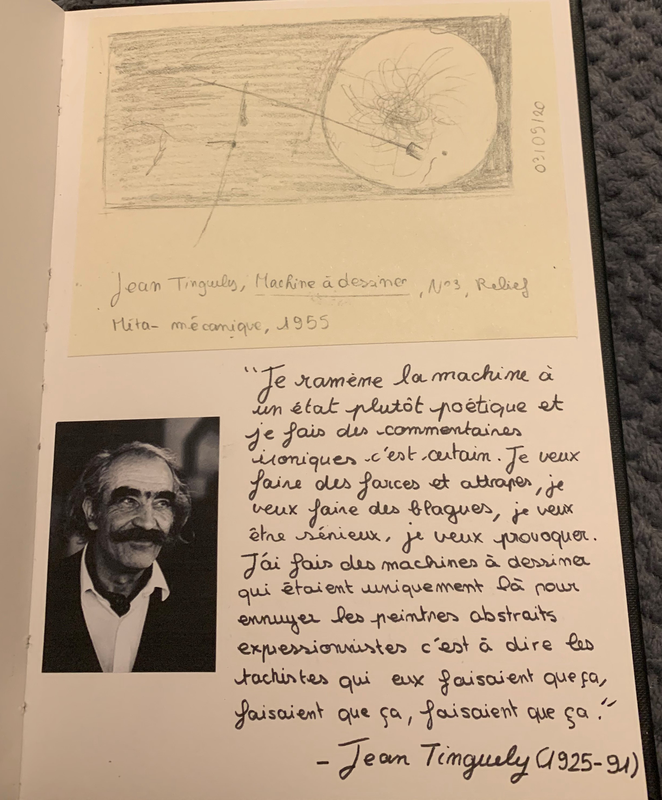 03/09/20
Jean Tinguely, Machine à dessiner, N°3, Relief
Méta-mécanique, 1955
"Je ramène la machine à
un état plutôt poétique et
je fais des commentaires
ironiques c'est certain. Je veux
faire des farces et attrapes, je
veux faire des blagues, je veux
être sérieux, je veux provoquer.
J'ai fais des machines à dessiner
qui étaient uniquement là pour
ennuyer les peintres abstraits
expressionnistes c'est à dire les
tachistes qui eux faisaient que ça,
faisaient que ça, faisaient que ça."
- Jean Tinguely (1925-91)